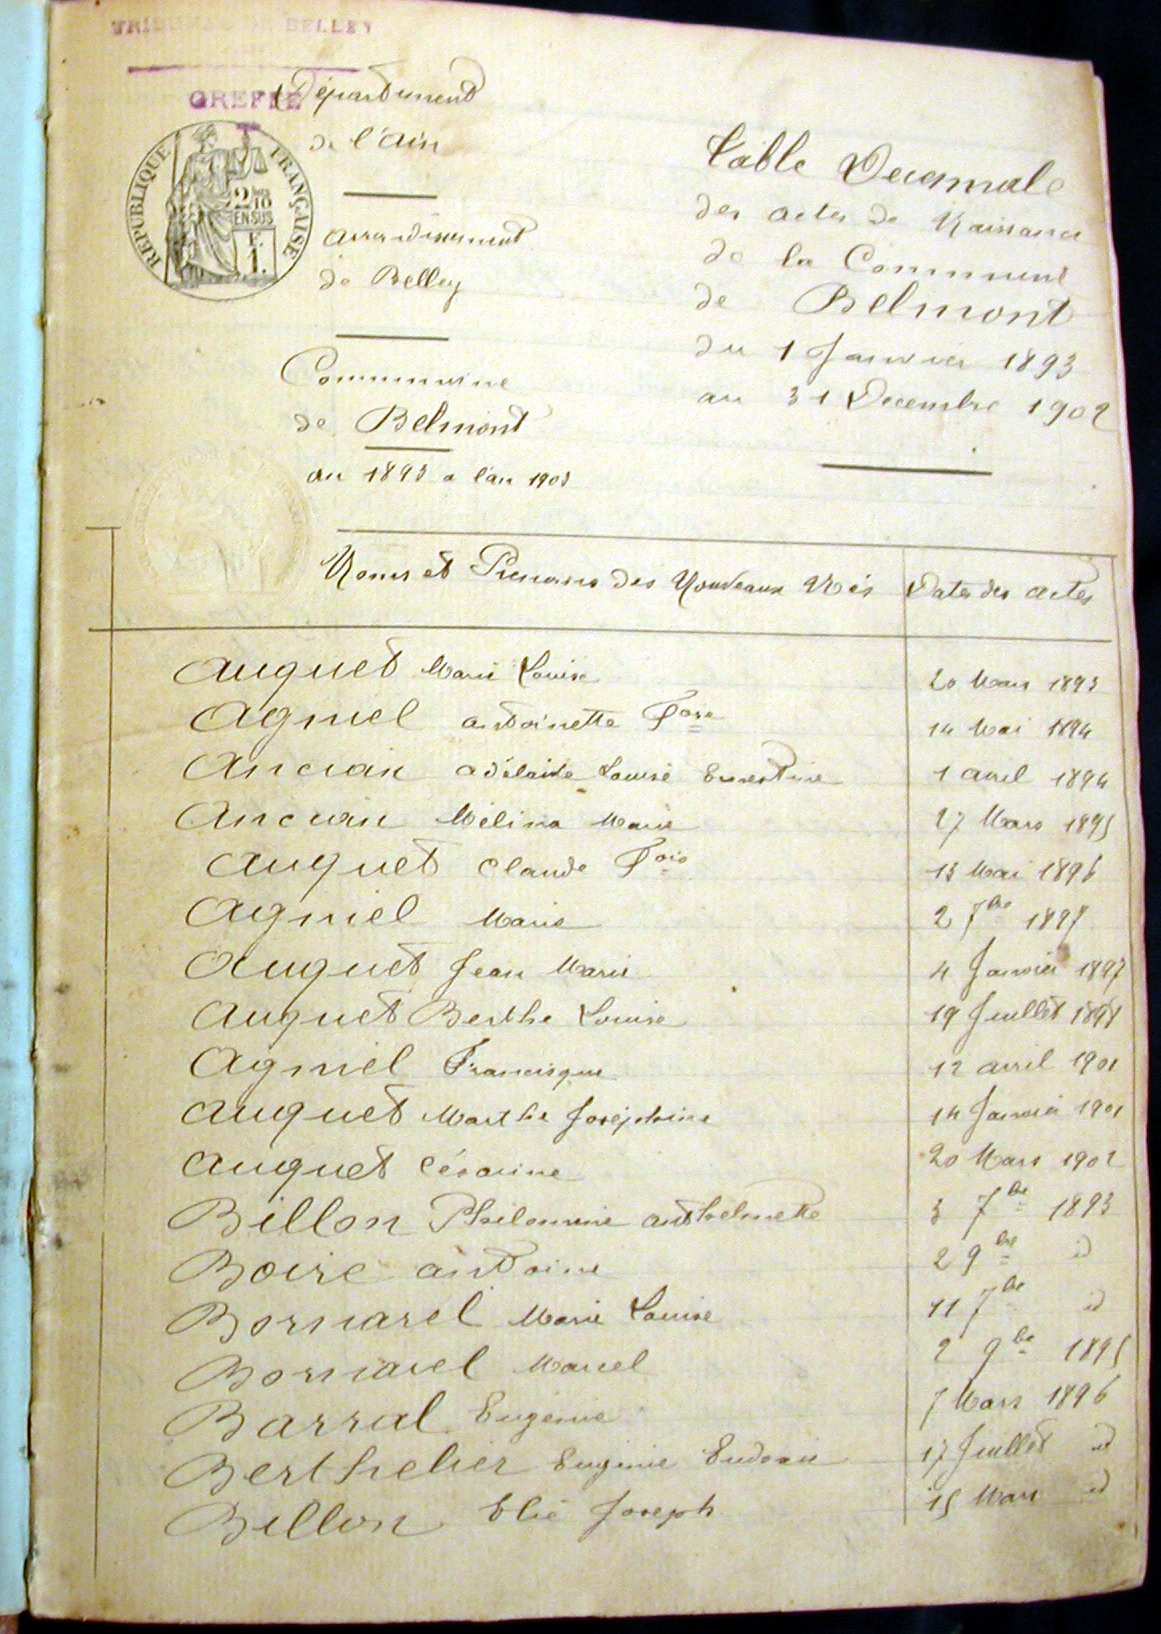 TRIBUNAL DE BELLEY
GREFFE
RÉPUBLIQUE FRANÇAISE
2/10
EN SUS
1 F.
Département
de l'Ain
arrondissement
de Belley
Commune
de Belmont
an 1893 a l'an 1903
Table Decennale
des actes de Naissance
de la Commune
de Belmont
du 1 Janvier 1893
au 31 Decembre 1902
Noms et Prenoms des Nouveaux Nés Dates des actes
Auguet Marie Louise 20 Mars 1893
Agniel antoinette Fose 14 Mai 1894
Ancian adélaide Louise Ernestine 1 avril 1894
Ancian Mélina Marie 27 Mars 1895
Auguet Claude Fois 13 Mai 1896
Agniel Marie 2 7bre 1897
Auguet Jean Marie 4 Janvier 1897
Auguet Berthe Louise 19 Juillet 1898
Agniel Francisque 12 avril 1901
Auguet Marthe Joséphine 14 Janvier 1901
Auguet Césarine 20 Mars 1902
Billon Philomine anthelmette 3 7bre 1893
Boire antoine 2 9bre id
Bornarel Marie Louise 11 7bre id
Bornarel Marcel 2 9bre 1895
Barral Eugénie 7 Mars 1896
Berthelier Eugénie Eudoxie 17 Juillet id
Billon Elie Joseph 15 Mars id